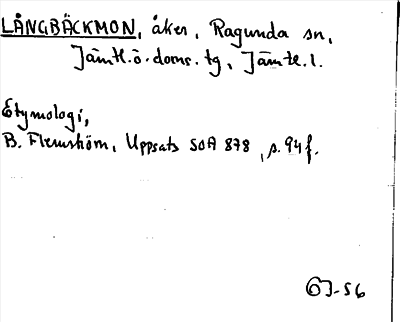 LÅNGBÄCKMON, åker, Ragunda sn,
Jämtl. ö. doms. tg, Jämtl. l.
Etymologi,
B. Flemström, Uppsats SOA 878, s. 94 f.
GJ-56